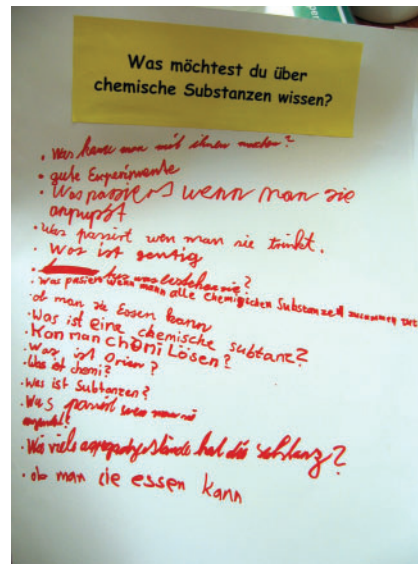 Was möchtest du über
chemische Substanzen wissen?
• Was kann man mit ihnen machen?
• gute Experimente
• Was passiers wenn man sie
anpupst
• Was passirt wen man sie trinkt.
• Was ist
• bestehen sie?
• was pasiert wenn mann alle Chemischen Substanzen zusammen
ob man sie Essen kann
• Was ist eine chemische subtanz?
• Kan man chomi Lösen?
• Was ist
• Was ist chomi?
• Was ist Substanzen?
• Was passirt wen man sie
• Wie viele hat die
• ob man sie essen kann